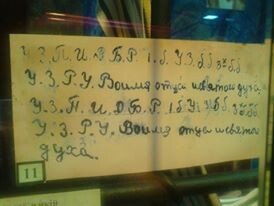 У.З.П.И.Д.Б.Р.1.б.У.З.б.б
У.З.Р.У. Воимя отца исвятого духа.
У.З.П.И.Д.Б.Р.1.б
У.З.Р.У. Воимя отца исвято
духа.
11